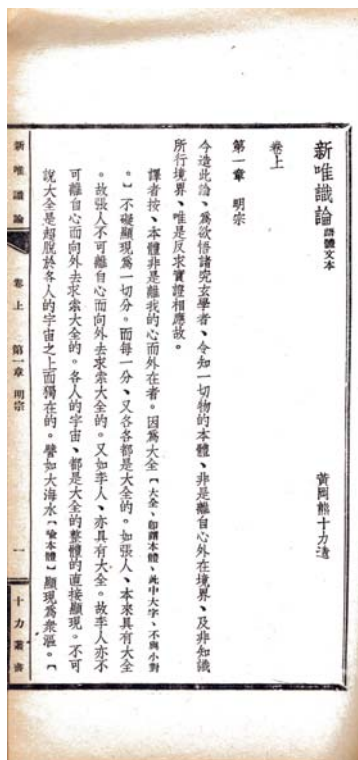 新唯識論 語體文本
黃岡熊十力造
卷上
第一章 明宗
今造此論、爲欲悟諸究玄學者、令知一切物的本體、非是離自心外在境界、及非知識
所行境界、唯是反求實證相應故。
譯者按、本體非是離我的心而外在者。因爲大全【大全、卽謂本體、此中大字、不與小對
。】不礙顯現爲一切分。而每一分、又各各都是大全的。如張人、本來具有大全
。故張人不可離自心而向外去求索大全的。又如李人、亦具有大全。故李人亦不
可離自心而向外去求索大全的。各人的宇宙、都是大全的整體的直接顯現。不可
說大全是超脫於各人的宇宙之上而獨在的。譬如大海水【喩本體】顯現爲衆漚。【
新唯識論 卷上 第一章 明宗 一 十力叢書